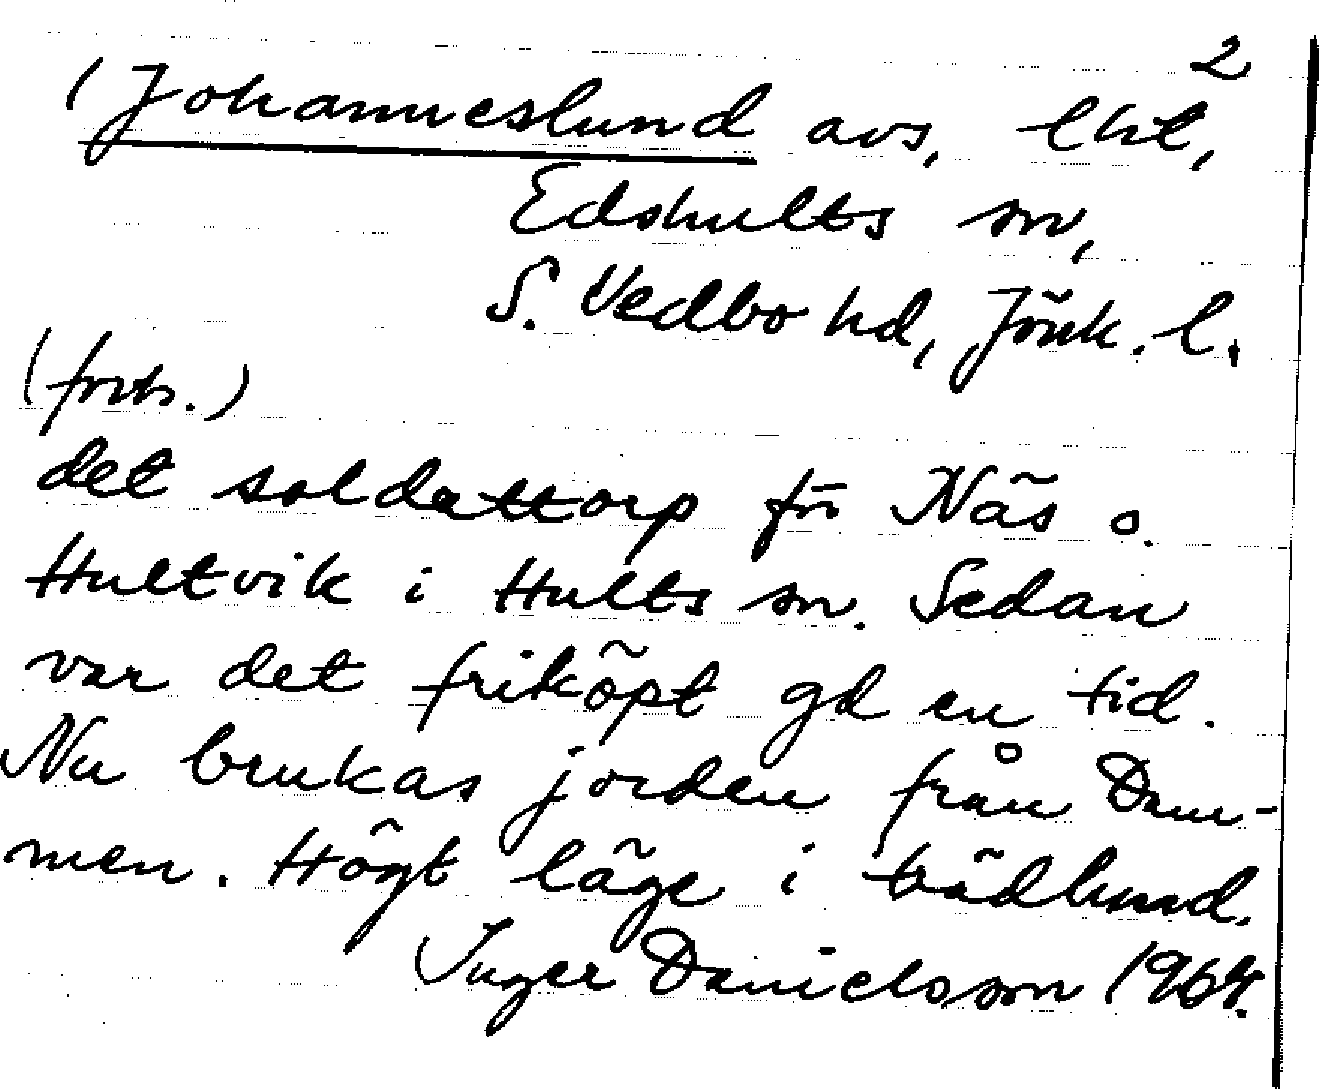 2
( Johanneslund avs, lht,
Edshults sn,
S. Vedbo hd, Jönk. l.
(forts.)
det soldattorp för Näs o.
Hultvik i Hults sn. Sedan
var det friköpt gd en tid.
Nu brukas jorden från Dam-
men. Högt läge i trädlund.
Inger Danielsson 1964.